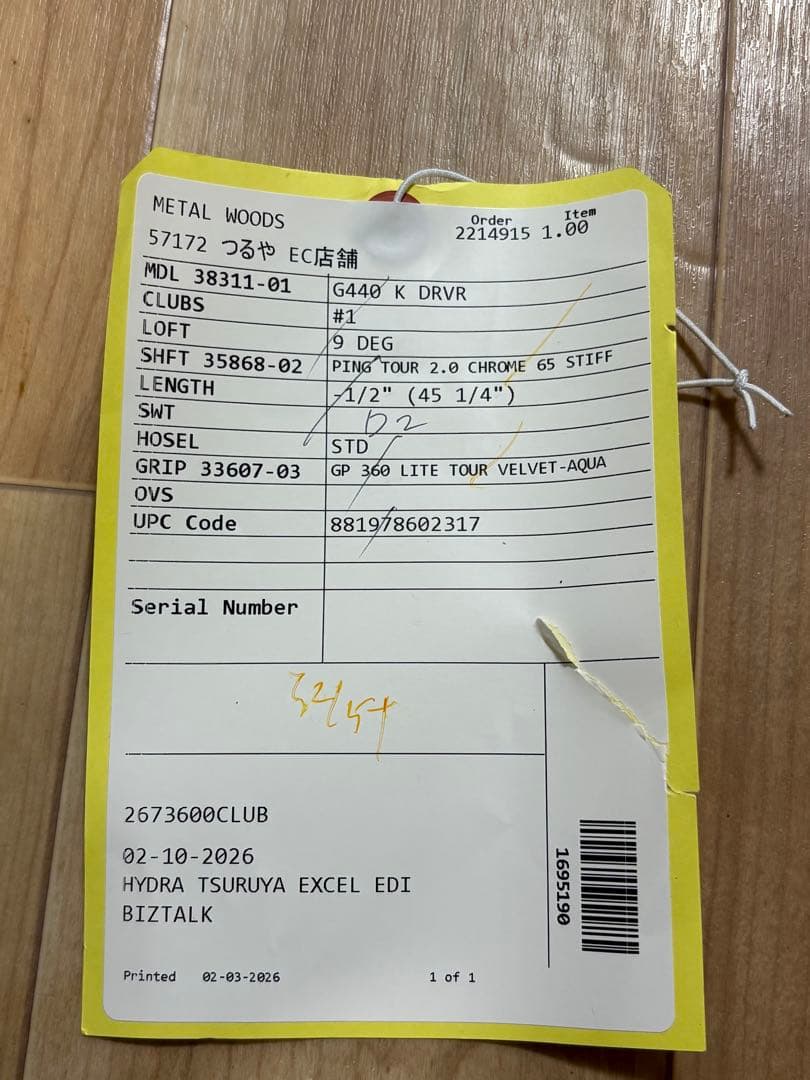 METAL WOODS
Order Item
57172 つるや EC店舗 2214915 1.00
MDL 38311-01 G440 K DRVR
CLUBS #1
LOFT 9 DEG
SHFT 35868-02 PING TOUR 2.0 CHROME 65 STIFF
LENGTH -1/2" (45 1/4")
SWT D2
HOSEL STD
GRIP 33607-03 GP 360 LITE TOUR VELVET-AQUA
OVS
UPC Code 881978602317
Serial Number
2673600CLUB
02-10-2026
HYDRA TSURUYA EXCEL EDI
BIZTALK
1695190
Printed 02-03-2026 1 of 1